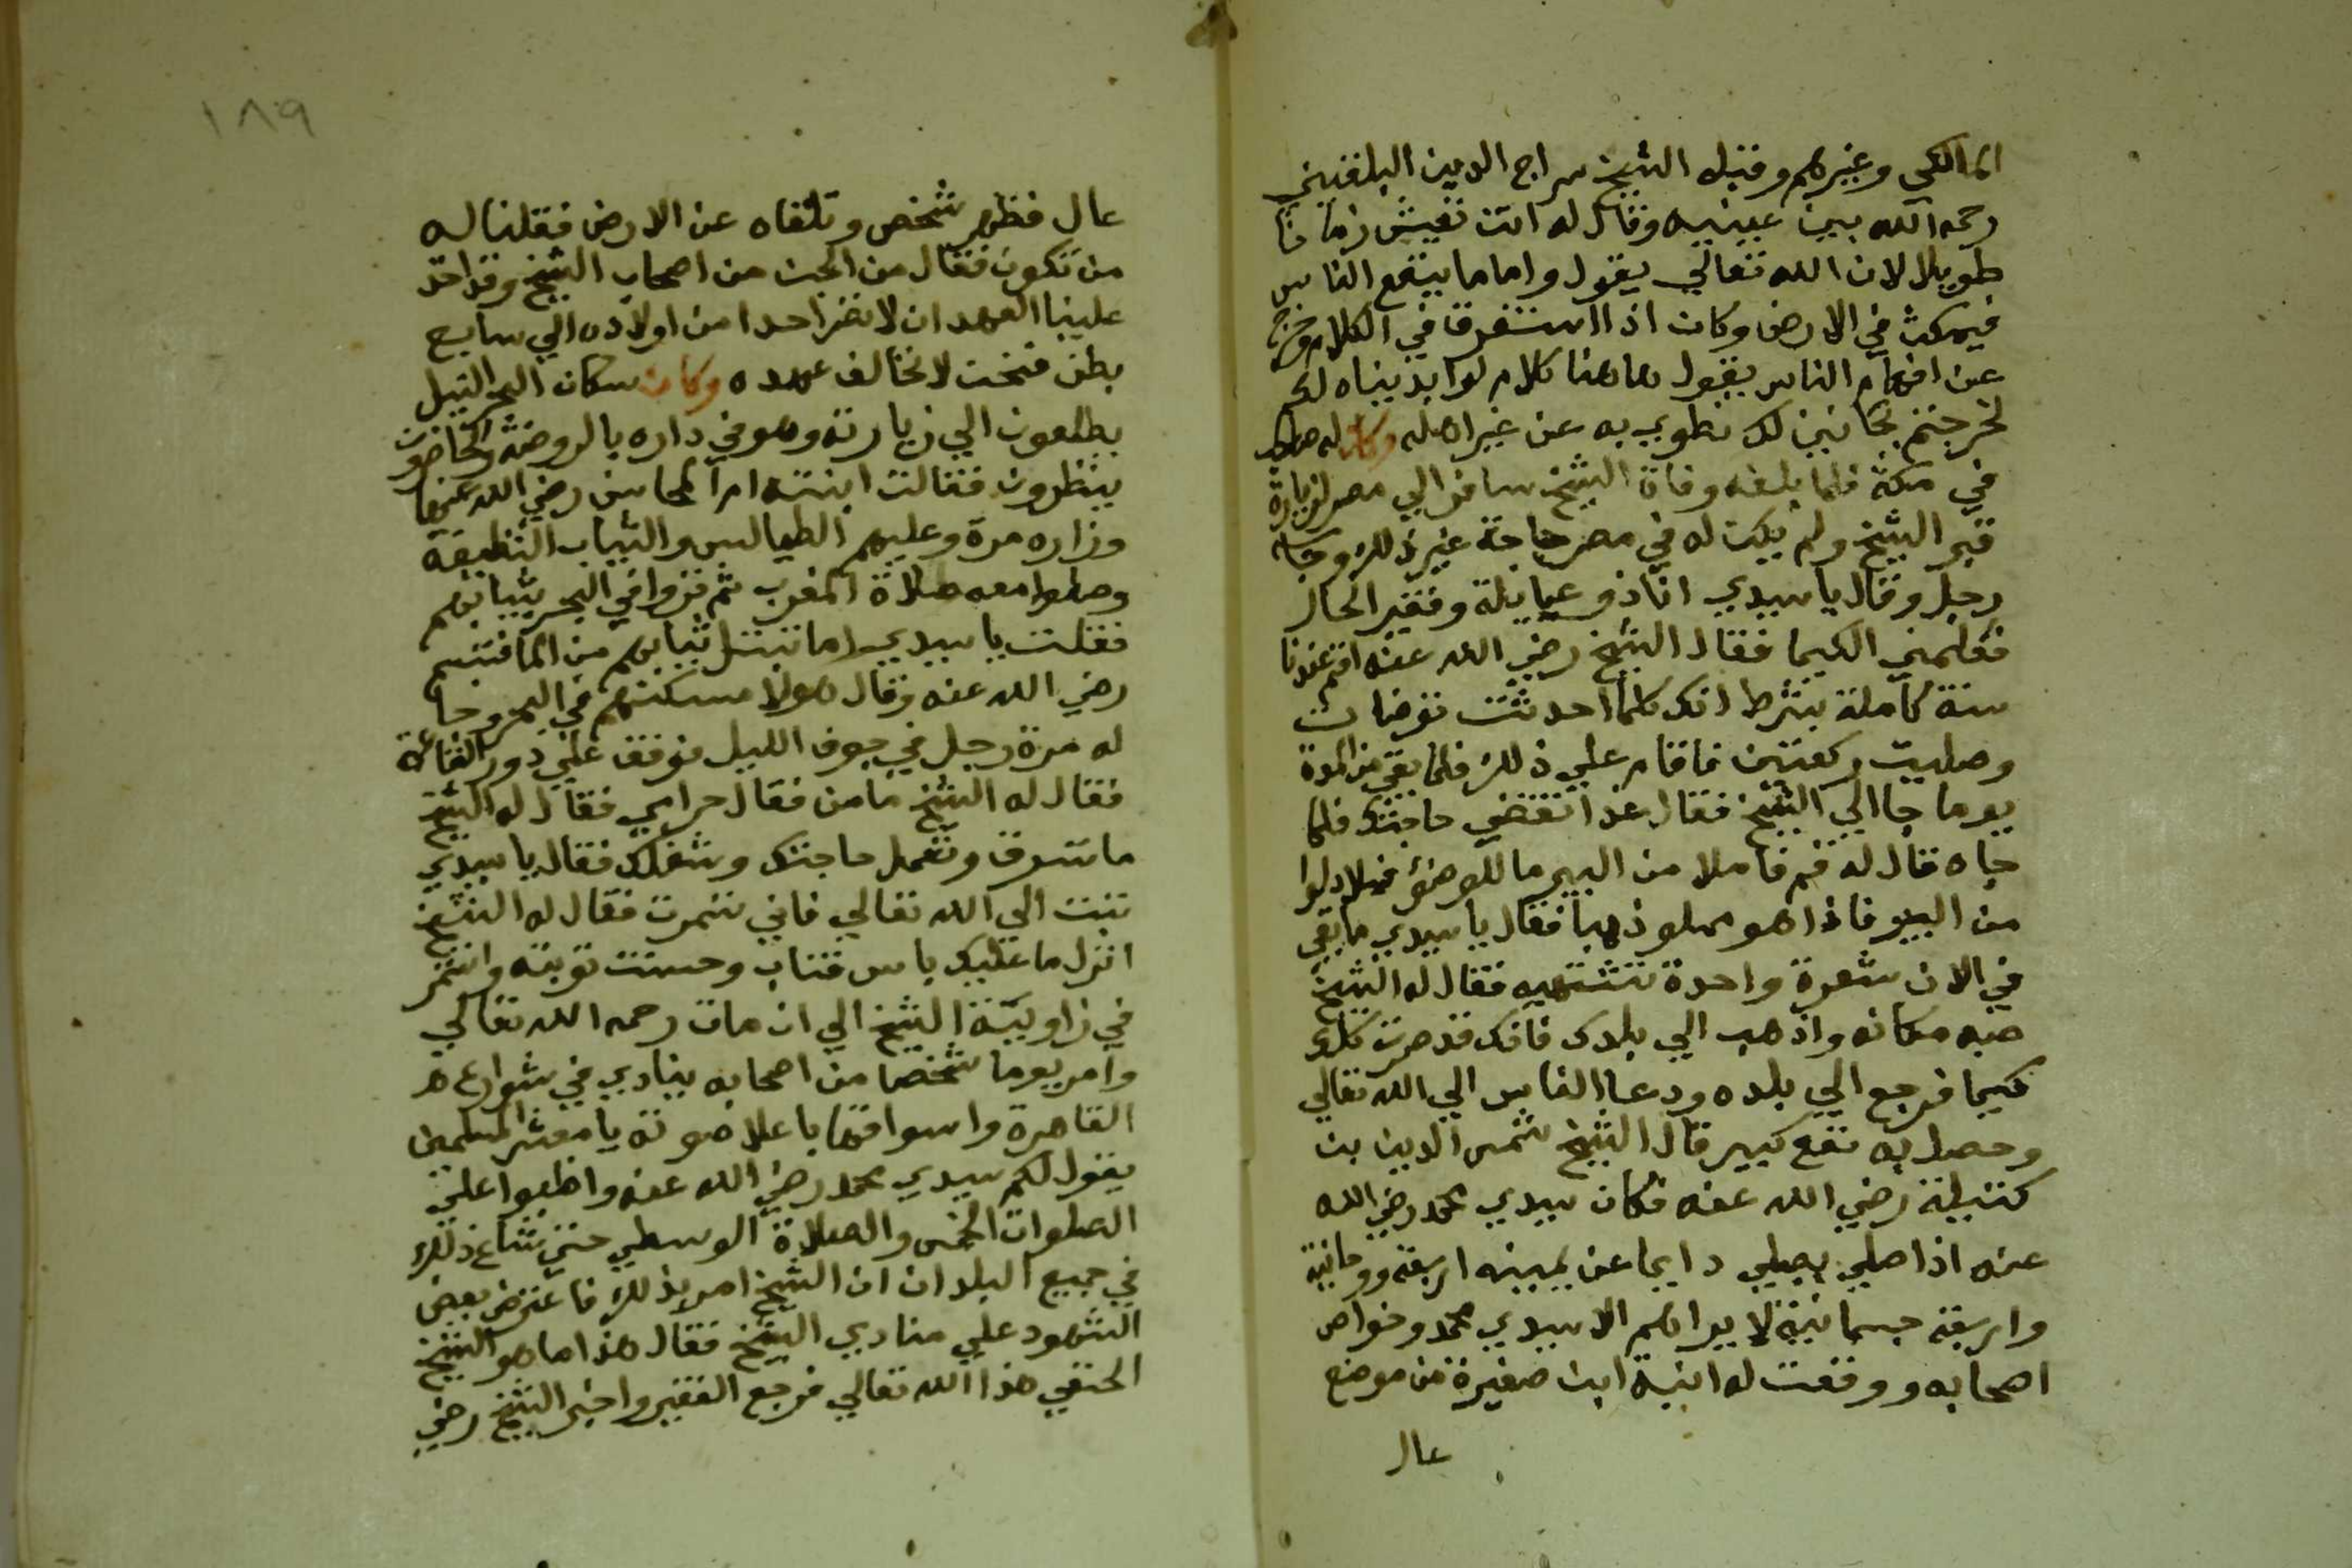 المالكي وغيرهم وقبله الشيخ سراج الدين البلقيني
رحمه الله بين عينيه وقال له انت تعيش زمانا
طويلا لان الله تعالي يقول واما ما ينفع الناس
فيمكث في الارض وكان اذا استغرق في الكلام وخرج
عن افهام الناس يقول هاهنا كلام لو ابديناه لكم
لخرجتم مجانين لكن نطوي به عن غير اهله وكان له صاحب
في مكة فلما بلغه وفاة الشيخ سافر الي مصر لزيارة
قبر الشيخ ولم يكن له في مصر حاجة غير ذلك وجا
رجل وقال يا سيدي انا ذو عيايلة وفقير الحال
فعلمني الكيميا فقال الشيخ رضي الله عنه اقم عندنا
سنة كاملة بشرط انك كلما احدثت توضات
وصليت ركعتين فاقام علي ذلك فلما بقي من المدة
يوما جا الي الشيخ فقال غدا تقضي حاجتك فلما
جاه قال له قم فاملا من البير ما للوضوء فملا دلوا
من البير فاذا هو مملو ذهبا فقال يا سيدي ما بقي
في الان شعرة واحدة تشتهيه فقال له الشيخ
صبه مكانه واذهب الي بلدك فانك قد صرت كلك
كيميا فرجع الي بلده ودعا الناس الي الله تعالي
وحصل به نفع كبير قال الشيخ شمس الدين بن
كتيلة رضي الله عنه فكان سيدي محمد رضي الله
عنه اذا صلي يصلي دايما عن يمينه اربعة روحانية
واربعة جسمانية لا يراهم الا سيدي محمد وخواص
اصحابه ووقعت له ابنية ابنة صغيرة من موضع
عال
١٨٩
عال فظهر شخص وتلقاه عن الارض فقلنا له
من تكون فقال من الجن من اصحاب الشيخ وقد اخذ
علينا العهد ان لا نضر احدا من اولاده الي سابع
بطن فنحن لا نخالف عهده وكان سكان البحر النيل
يطلعون الي زيارته وهو في داره بالروضة والحاضرون
ينظرون فقالت ابنته ام المحاسن رضي الله عنها
وزاره مرة وعليهم الطيالس والثياب النظيفة
وصلوا معه صلاة المغرب ثم نزلوا في البحر بثيابهم
فقلت يا سيدي اما تبتل ثيابهم من الما فتبسم
رضي الله عنه وقال هولا مسكنهم في البحر وجا
له مرة رجل في جوف الليل فوقف علي دور القاعة
فقال له الشيخ ما من فقال حرامي فقال له الشيخ
ما تسرق وتعمل حاجتك وشغلك فقال يا سيدي
تبت الي الله تعالي فاني تسمرت فقال له الشيخ
انزل ما عليك باس فتاب وحسنت توبته واستمر
في زاوية الشيخ الي ان مات رحمه الله تعالي
وامر يوما شخصا من اصحابه ينادي في شوارع
القاهرة واسواقها باعلا صوته يا معشر المسلمين
يقول لكم سيدي محمد رضي الله عنه واظبوا علي
الصلوات الخمس والصلاة الوسطي حتي شاع ذلك
في جميع البلدان ان الشيخ امر بذلك فاعترض بعض
الشهود علي منادي الشيخ فقال هذا ما هو الشيخ
الحنفي هذا الله تعالي فرجع الفقير واخبر الشيخ رضي